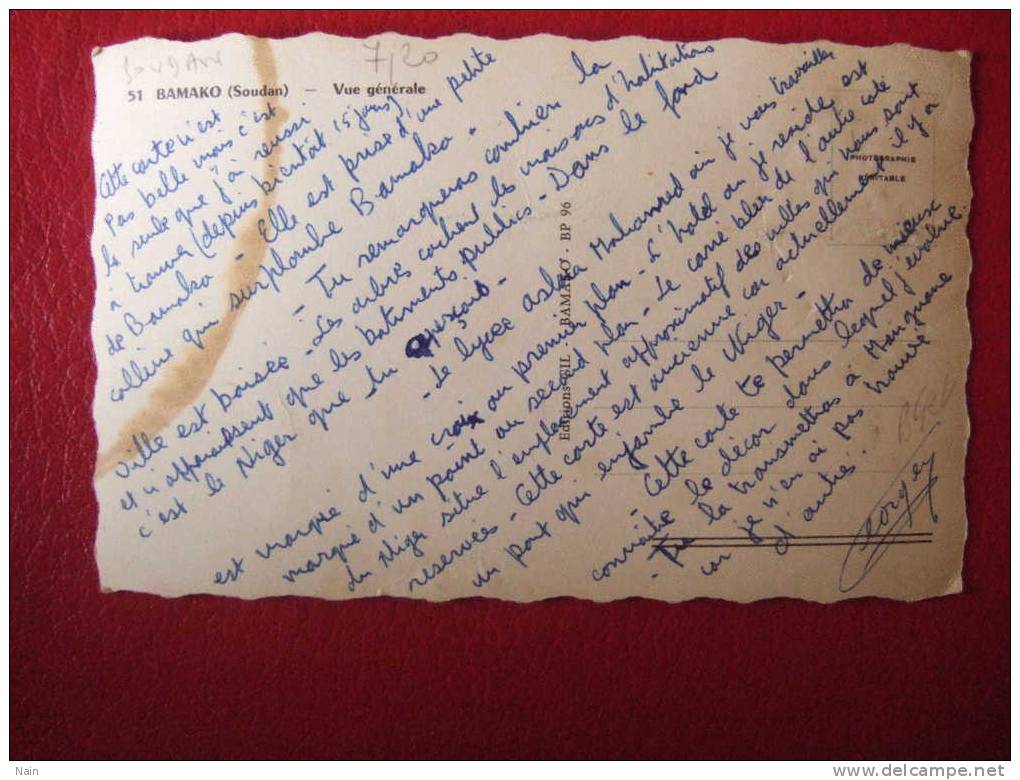 SOUDAN
7/20
51 BAMAKO (Soudan) — Vue générale
PHOTOGRAPHIE
VÉRITABLE
Editions - BAMAKO - BP 96
Cette carte n'est
pas belle mais c'est
la seule que j'ai reussi
à trouver (depuis bientôt 15 jours)
de Bamako - Elle est prise d'une petite
colline qui surplombe Bamako -
- Tu remarqueras combien la
ville est boisée - Les arbres cachent les maisons d'habitations
et n'apparaissent que les batiments publics - Dans le fond
c'est le Niger que tu
- Le lycée askia Mohamed où je vais travailler
est marqué d'une croix au premier plan - L'hotel où je reside est
marqué d'un point au second plan - Le carré bleu de l'autre coté
du Niger situe l'emplacement approximatif des villas qui nous sont
reservées - Cette carte est ancienne car actuellement il y a
un pont qui enjambe le Niger -
- Cette carte te permettra de mieux
connaitre le décor dans lequel j'évolue.
- Tu la transmettras à
car je n'en ai pas trouvé
d'autres.
Georges
Nain
delcampe.net